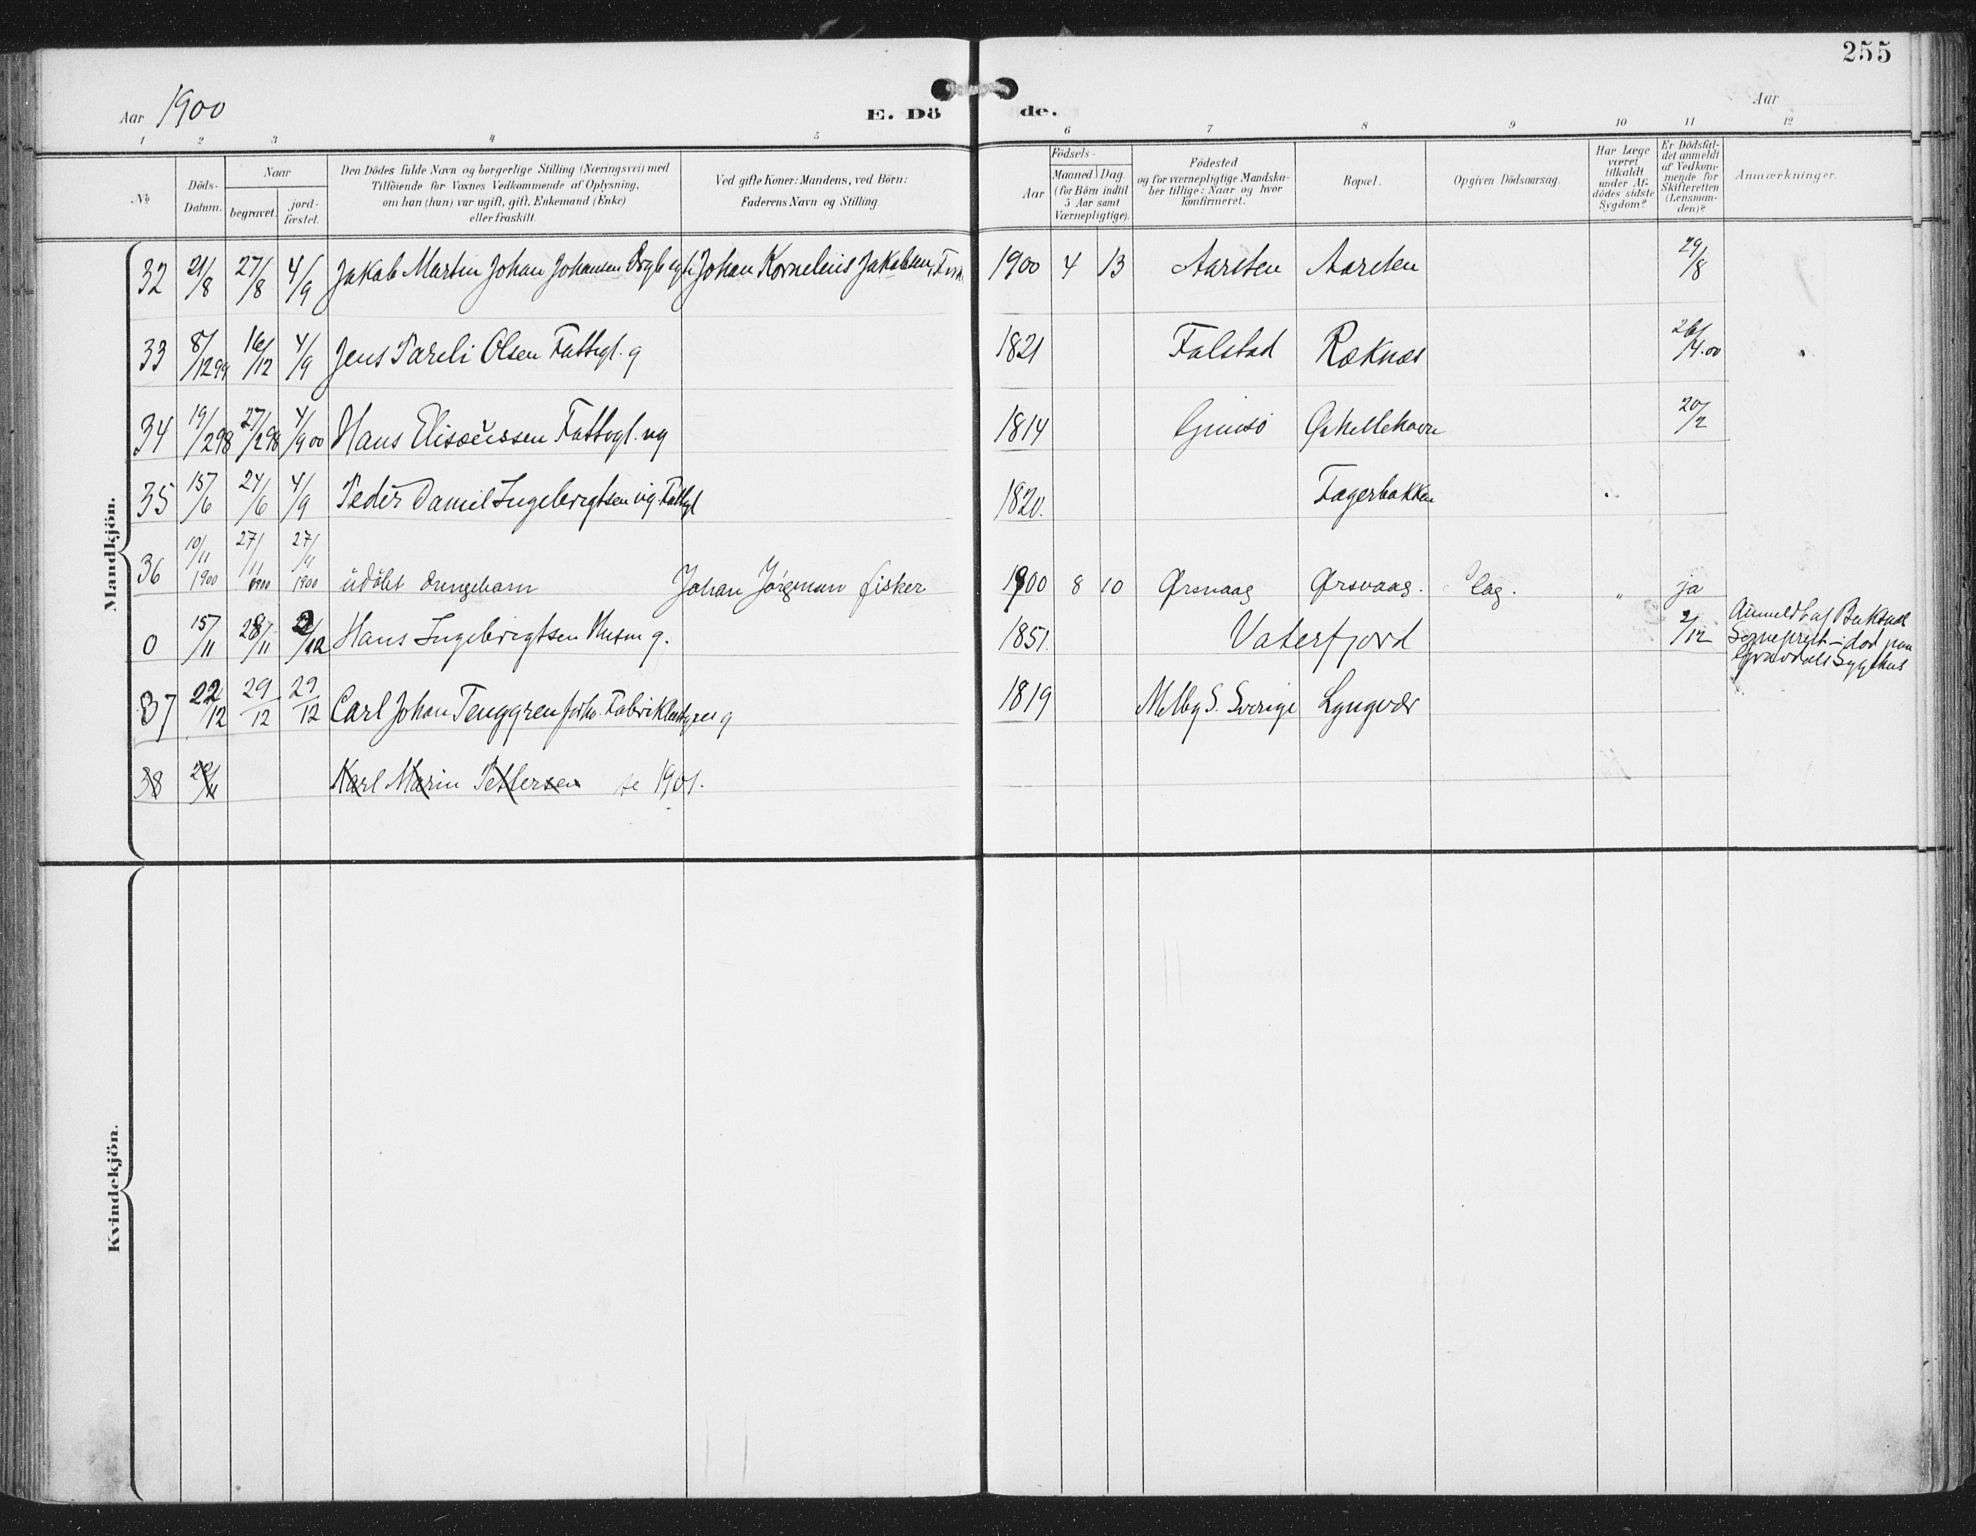 255
Aar 1900
E. Dö de.
Aar
1 2 3 4 5 6 7 8 9 10 11 12
No
Döds-Datum.
Naar
begravet.
jord-fæstet.
Den Dödes fulde Navn og borgerlige Stilling (Næringsvei) med
Tilföiende for Voxnes Vedkommende af Oplysning,
om han (hun) var ugift, gift, Enkemand (Enke)
eller fraskilt.
Ved gifte Koner: Mandens, ved Börn:
Faderens Navn og Stilling.
Födsels-
Aar
Maaned Dag.
(for Börn indtil
5 Aar samt
Værnepligtige).
Födested
og for værnepligtige Mandska-
ber tillige: Naar og hvor
konfirmeret.
Bopæl.
Opgiven Dödsaarsag.
Har Læge
været
tilkaldt
under Af-
dödes sidste
Sygdom?
Er Dödsfal-
det anmeldt
af Vedkom-
mende for
Skifteretten
(Lensman-
den)?
Anmærkninger.
Mandkjön.
32 21/8 27/8 4/9 Jakob Martin Johan Johansen Johan Kornelius Jakobsen, 1900 4 13 Aarsten Aarsten 29/8
33 8/12 99 16/12 4/9 Jens Pareli Olsen Fattigl. g 1821 Falstad Røknes 26/4.00
34 19/2 98 27/2 98 4/9 00 Hans Elisæussen Fattigl. ug 1814 Gimsø 20/2
35 15/6 24/6 4/9 Peder Daniel Ingebrigtsen ug. Fattigl 1820. Fagerbakken
36 10/11 1900 27/11 1900 27/11 1900 udøbt drengebarn Johan Jørgensen fisker 1900 8 10 Ørsvaag Ørsvaag. " ja
0 15/11 28/11 2/12 Hans Ingebrigtsen Husm g. 1851. Vaterfjord 2/12 Anmeldt af Buksnes
Sogneprest - død paa
Gravdals Sygehus
37 22/12 29/12 29/12 Carl Johan Tenggren forhv. Fabrikbestyrer g 1819 Melby S. Sverige Lyngvær
38 Karl Marin Pettersen se 1901.
Kvindekjön.